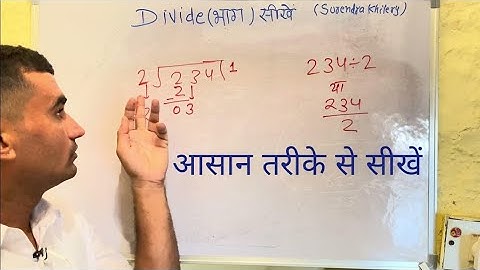 Divide (भाग) सीखें (Surendra Khilery)
2√234(1
2↓
03
234÷2
या
234
2
आसान तरीके से सीखें